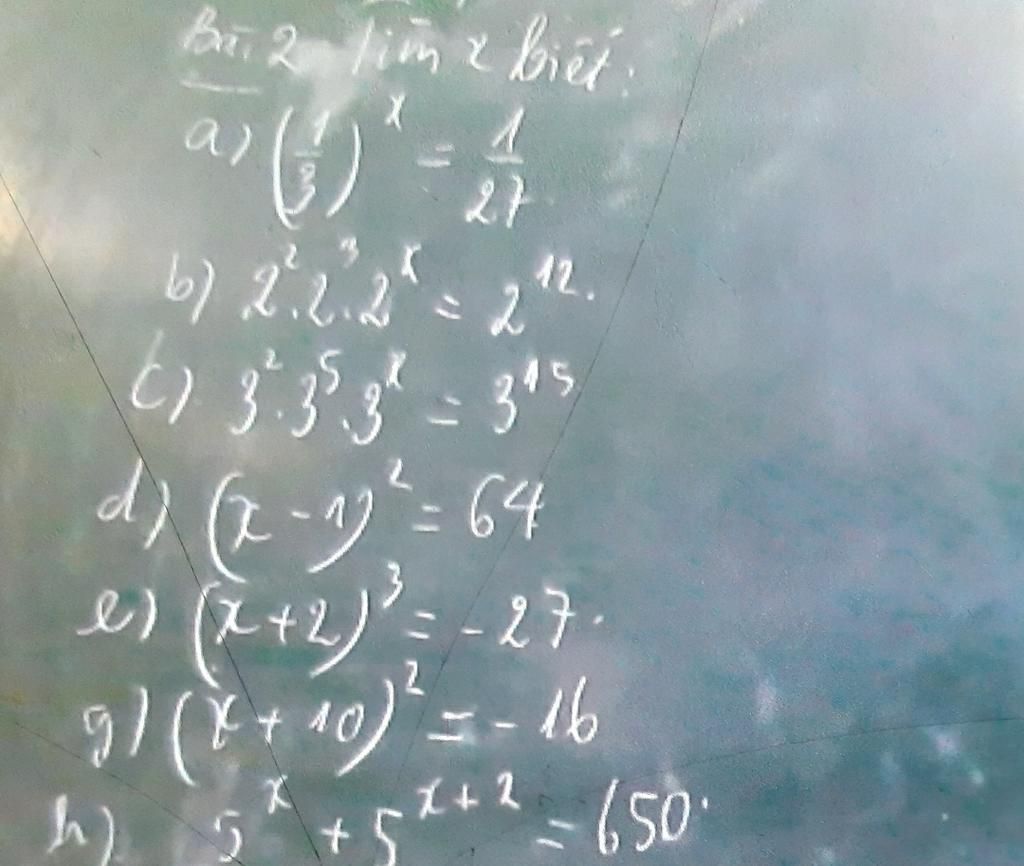 Bài 2 Tìm x biết:
a) (1/3)^x = 1/27
b) 2².2³.2^x = 2^12.
c) 3².3⁵.3^x = 3^15
d) (x - 1)² = 64
e) (x + 2)³ = - 27.
g) (x + 10)² = - 16
h) 5^x + 5^(x+2) = 650.